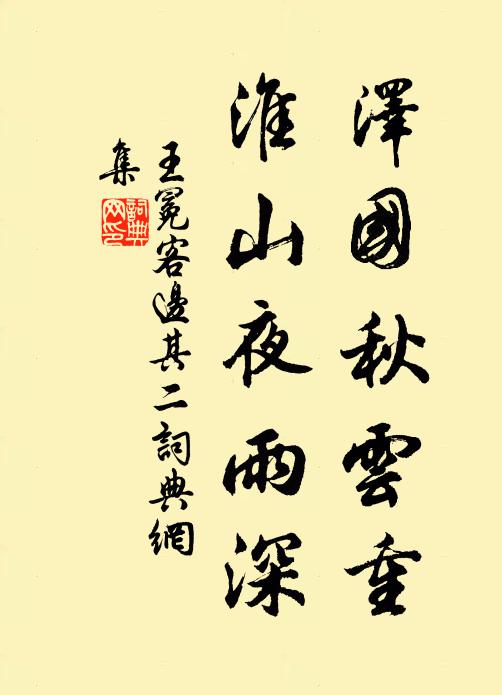 澤國秋雲重
淮山夜雨深
王冕客邊其二詞典網
集
詞典
网印